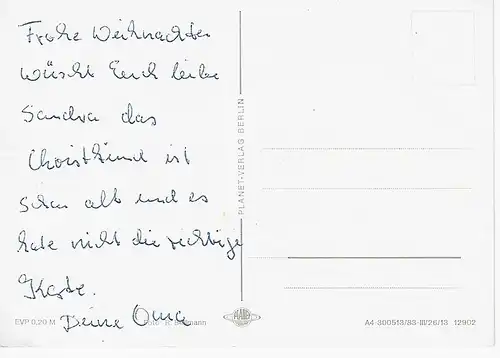 Frohe Weihnachten
wüscht Euch liebe
Sandra das
Christkind ist
schon alt und es
hate nicht die richtige
Karte.
Deine Oma
PLANET-VERLAG BERLIN
EVP 0,20 M
Foto: R.
PLANET
A4-300513/83-III/26/13 12902